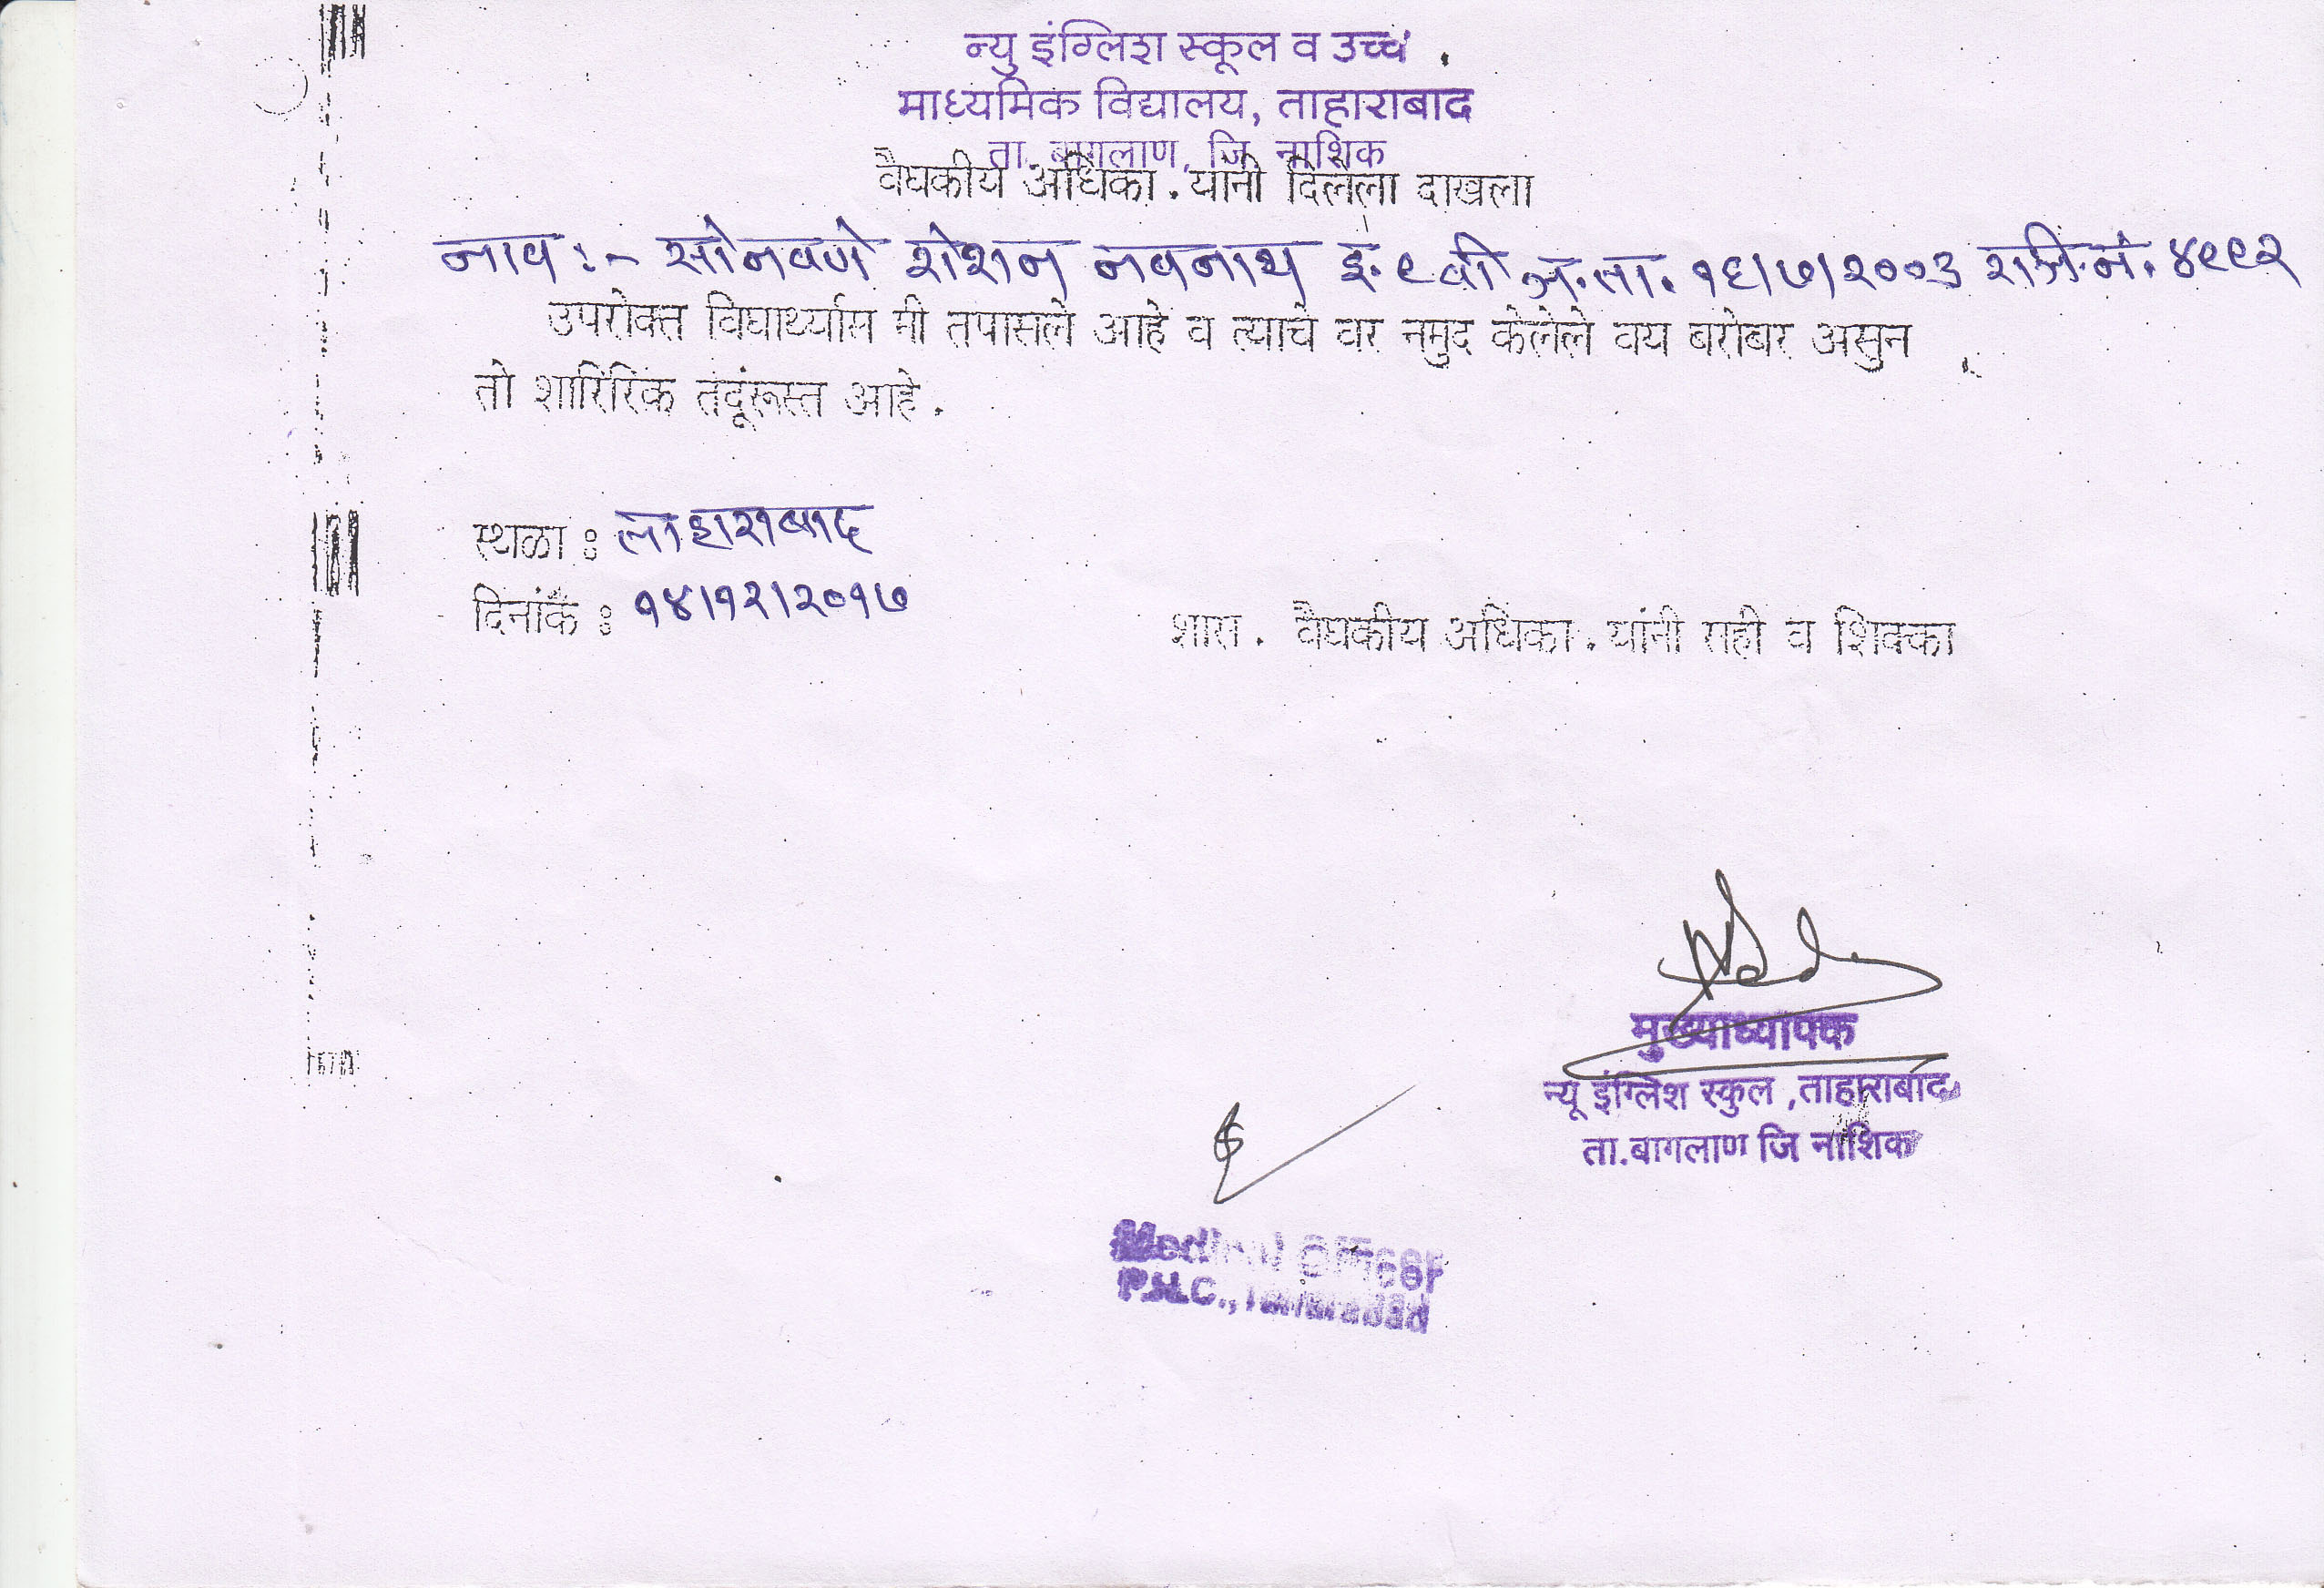 न्यु इंग्लिश स्कूल व उच्च
माध्यमिक विद्यालय, ताहाराबाद
ता. बागलाण, जि. नाशिक
वैघकीय अधिका. यांनी दिलेला दाखला
नाव :- सोनवणे रोशन नवनाथ इ. ९ वी ज.ता. १६/७/२००३ रजि.नं. ४९९२
उपरोक्त विघार्थ्यास मी तपासले आहे व त्याचे वर नमुद केलेले वय बरोबर असुन
तो शारिरिक तदूंरूस्त आहे.
स्थळा : ताहाराबाद
दिनांक : १४/१२/२०१७
शास. वैघकीय अधिका. यांनी सही व शिक्का
मुख्याध्यापक
न्यू इंग्लिश स्कुल ,ताहाराबाद
ता.बागलाण जि नाशिक
Medical Officer
P.H.C., Taharabad